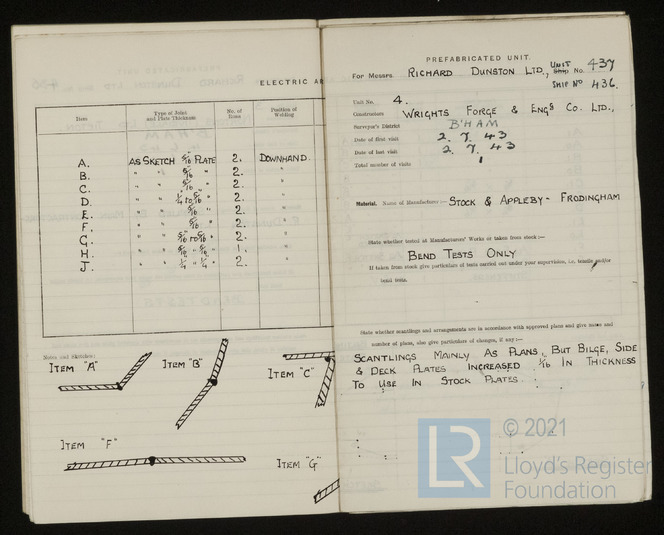 ELECTRIC A
Item
Type of Joint
and Plate Thickness
No. of
Runs
Position of
Welding
A. AS SKETCH 5/16 PLATE 2. DOWNHAND.
B. " " 5/16 " 2. "
C. " " 5/16 " 2. "
D. " " 1/4 to 5/16 " 2. "
E. " " 5/16 " 2. "
F. " " 5/16 " 2. "
G. " " 5/16 to 5/16 " 2. "
H. " " 5/16 " 5/16 " 1. "
J. " " 1/4 " 1/4 " 2. "
Notes and Sketches:
ITEM "A"
ITEM "B"
ITEM "C"
ITEM "F"
ITEM "G"
PREFABRICATED UNIT.
For Messrs. RICHARD DUNSTON LTD., UNIT Ship No. 437
SHIP No 436.
Unit No. 4.
Constructors WRIGHTS FORGE & ENGG Co. LTD.,
Surveyor's District B'HAM
Date of first visit 2. 7. 43
Date of last visit 2. 7. 43
Total number of visits 1
Material. Name of Manufacturer:— STOCK & APPLEBY - FRODINGHAM
State whether tested at Manufacturers' Works or taken from stock:—
BEND TESTS ONLY
If taken from stock give particulars of tests carried out under your supervision, i.e. tensile and/or
bend tests.
State whether scantlings and arrangements are in accordance with approved plans and give dates and
number of plans, also give particulars of changes, if any:—
SCANTLINGS MAINLY AS PLANS, BUT BILGE, SIDE
& DECK PLATES INCREASED 1/16 IN THICKNESS
TO USE IN STOCK PLATES.
LR
© 2021
Lloyd's Register
Foundation